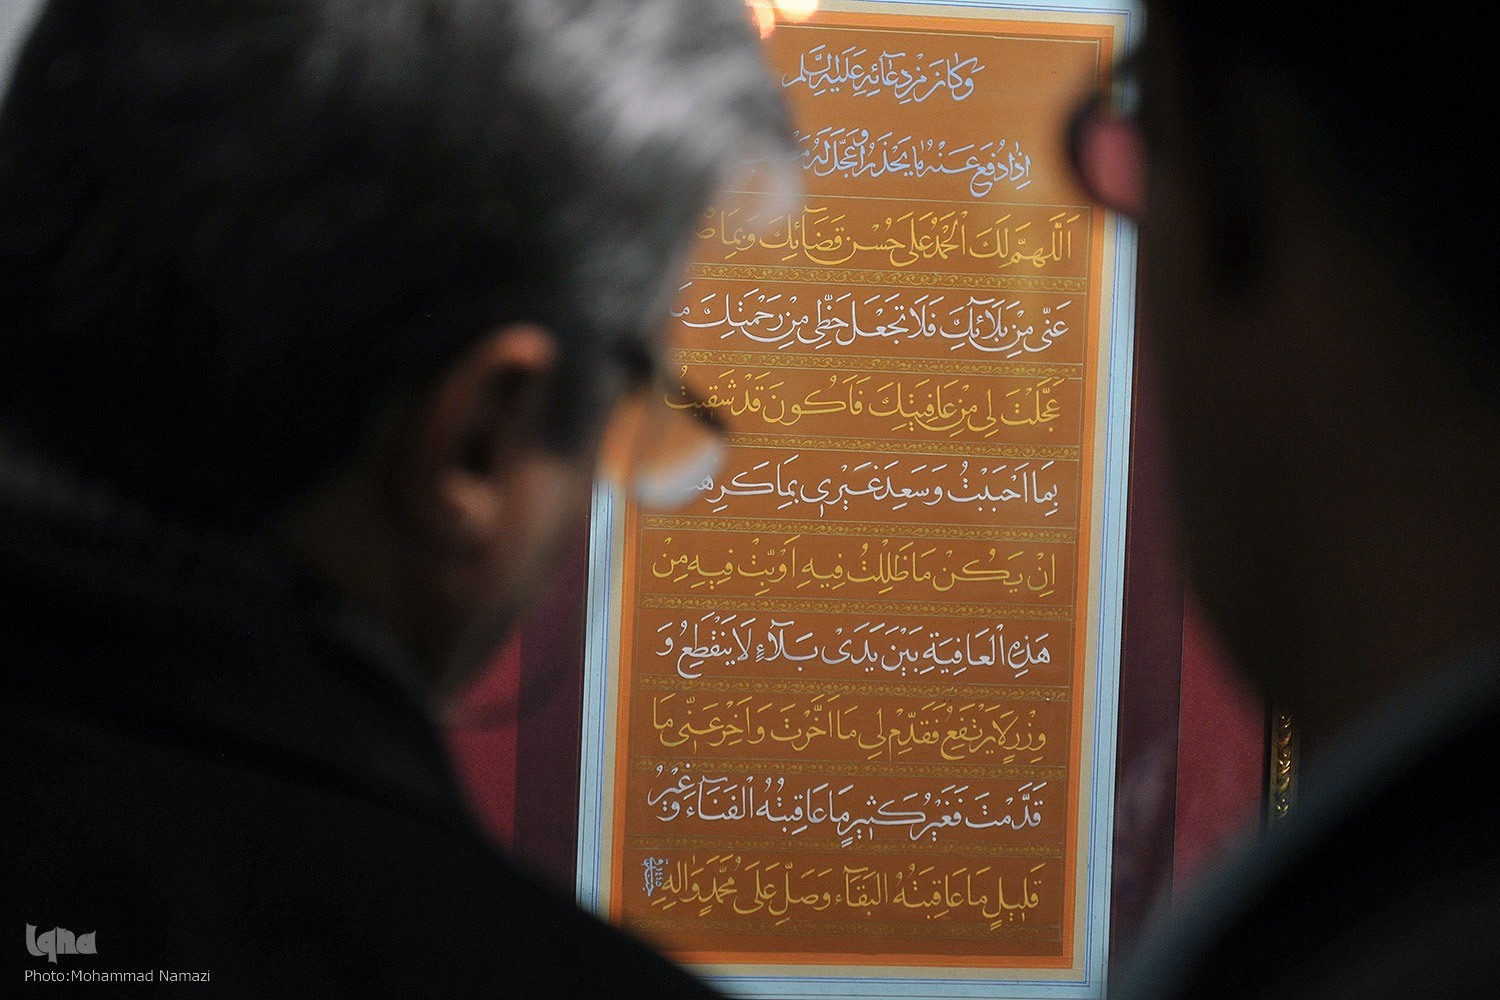 وَكَانَ مِنْ دُعَائِهِ عَلَيْهِ السَّلَامُ
إِذَا دُفِعَ عَنْهُ مَا يَحْذَرُ أَوْ عُجِّلَ لَهُ
اَللّٰهُمَّ لَكَ الْحَمْدُ عَلَى حُسْنِ قَضَآئِكَ وَبِمَا
عَنِّي مِنْ بَلَآئِكَ فَلَا تَجْعَلْ حَظِّي مِنْ رَحْمَتِكَ
عَجَّلْتَ لِي مِنْ عَافِيَتِكَ فَاَكُونَ قَدْ شَقِيتُ
بِمَا اَحْبَبْتُ وَسَعِدَ غَيْرِي بِمَا كَرِهْتُ
اِنْ يَكُنْ مَا ظَلِلْتُ فِيهِ اَوْ بِتُّ فِيهِ مِنْ
هَذِهِ الْعَافِيَةِ بَيْنَ يَدَيْ بَلَآءٍ لَا يَنْقَطِعُ وَ
وِزْرٍ لَا يَرْتَفِعُ فَقَدِّمْ لِي مَا اَخَّرْتَ وَاَخِّرْ عَنِّي مَا
قَدَّمْتَ فَغَيْرُ كَثِيرٍ مَا عَاقِبَتُهُ الْفَنَآءُ وَغَيْرُ
قَلِيلٍ مَا عَاقِبَتُهُ الْبَقَآءُ وَصَلِّ عَلَى مُحَمَّدٍ وَاٰلِهِ
Iqna
Photo:Mohammad Namazi